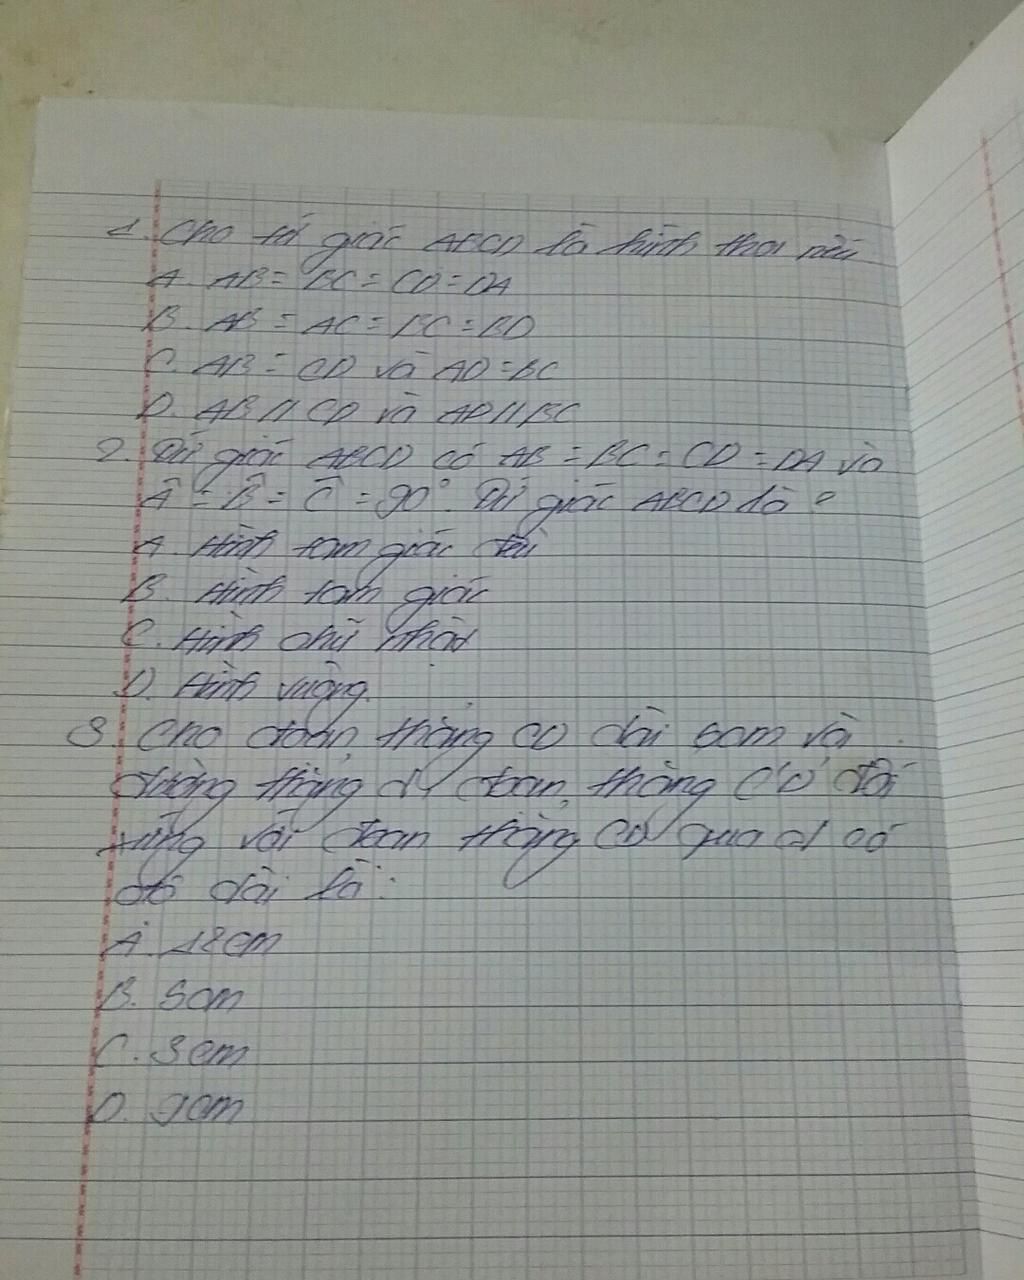 1. Cho tứ giác ABCD là hình thoi nếu
A. AB = BC = CD = DA
B. AB = AC = BC = BD
C. AB = CD và AD = BC
D. AB // CD và AD // BC
2. Tứ giác ABCD có AB = BC = CD = DA và
Â = B̂ = Ĉ = 90°. Tứ giác ABCD là ?
A. Hình tam giác đều
B. Hình tam giác
C. Hình chữ nhật
D. Hình vuông.
3. Cho đoạn thẳng CD dài 5cm và
đường thẳng d, đoạn thẳng C'D' đối
xứng với đoạn thẳng CD qua d có
độ dài là:
A. 12cm
B. 5cm
C. 3cm
D. 9cm